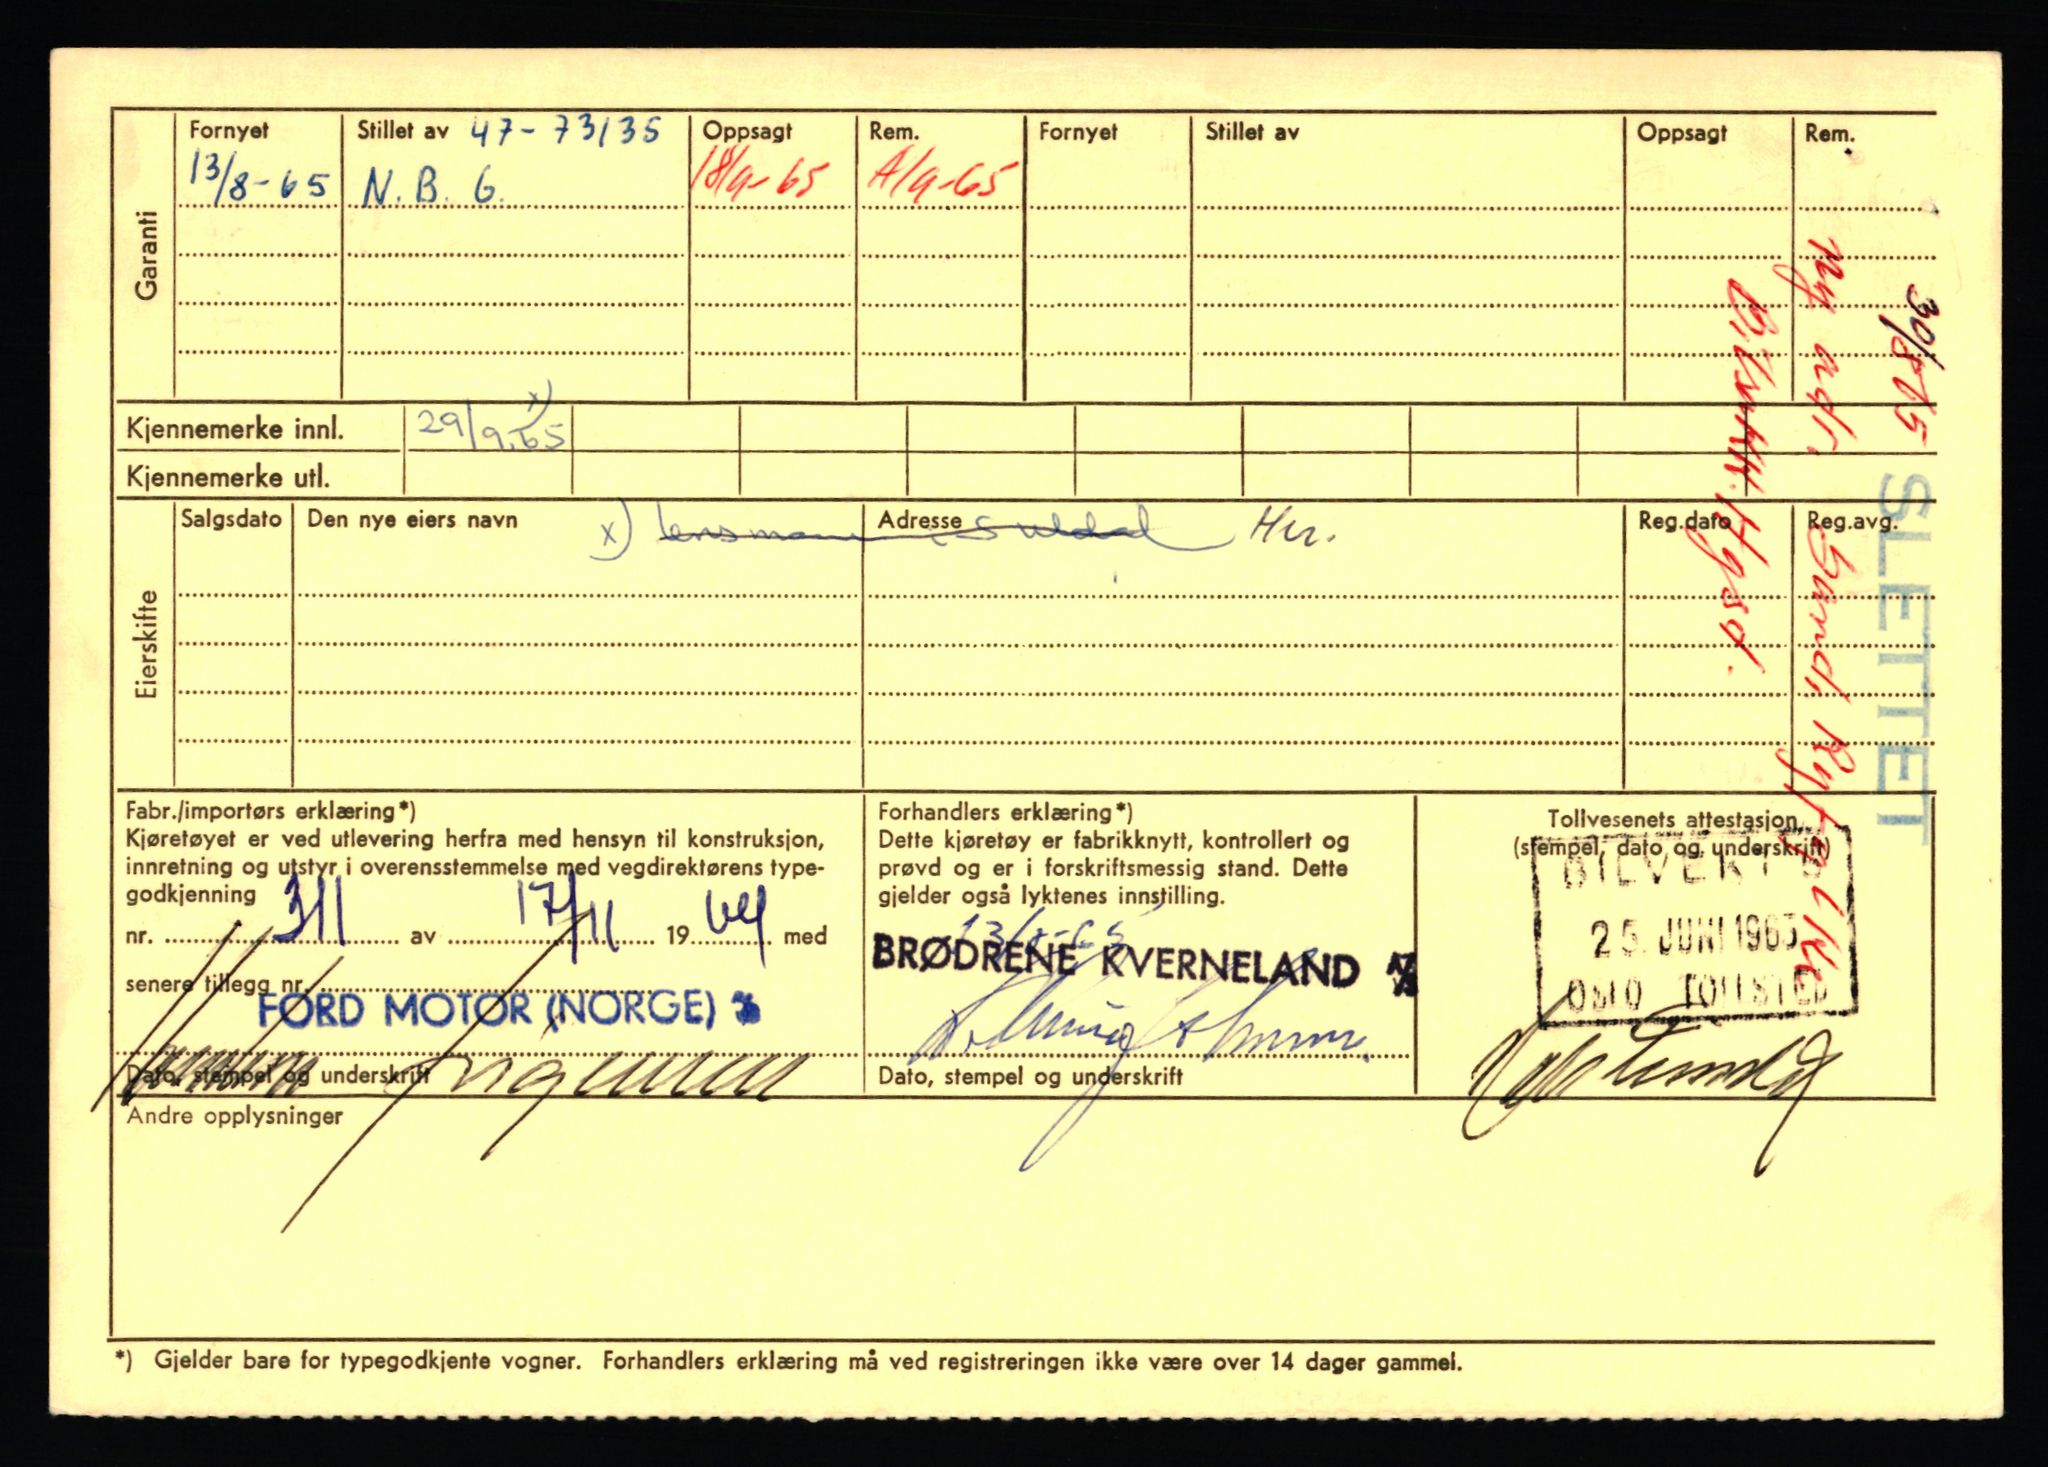 Garanti
Fornyet Stillet av 47-73135 Oppsagt Rem. Fornyet Stillet av Oppsagt Rem.
13/8-65 N. B. G. 18/9-65 A/9-65
Kjennemerke innl. 29/9.65 x)
Kjennemerke utl.
Eierskifte
Salgsdato Den nye eiers navn Adresse Reg.dato Reg.avg.
x) lensmann Suldal Her.
30/8-65
ny adr. Sand, Ryfylke
SLETTET
Fabr./importørs erklæring*)
Kjøretøyet er ved utlevering herfra med hensyn til konstruksjon,
innretning og utstyr i overensstemmelse med vegdirektørens type-
godkjenning
nr. 311 av 17/11 1964 med
senere tillegg nr.
FORD MOTOR (NORGE) A/S
Dato, stempel og underskrift
Forhandlers erklæring*)
Dette kjøretøy er fabrikknytt, kontrollert og
prøvd og er i forskriftsmessig stand. Dette
gjelder også lyktenes innstilling.
13/8-65
BRØDRENE KVERNELAND A/S
Dato, stempel og underskrift
Tollvesenets attestasjon
(stempel, dato og underskrift)
25. JUNI 1965
OSLO TOLLSTED
Andre opplysninger
*) Gjelder bare for typegodkjente vogner. Forhandlers erklæring må ved registreringen ikke være over 14 dager gammel.